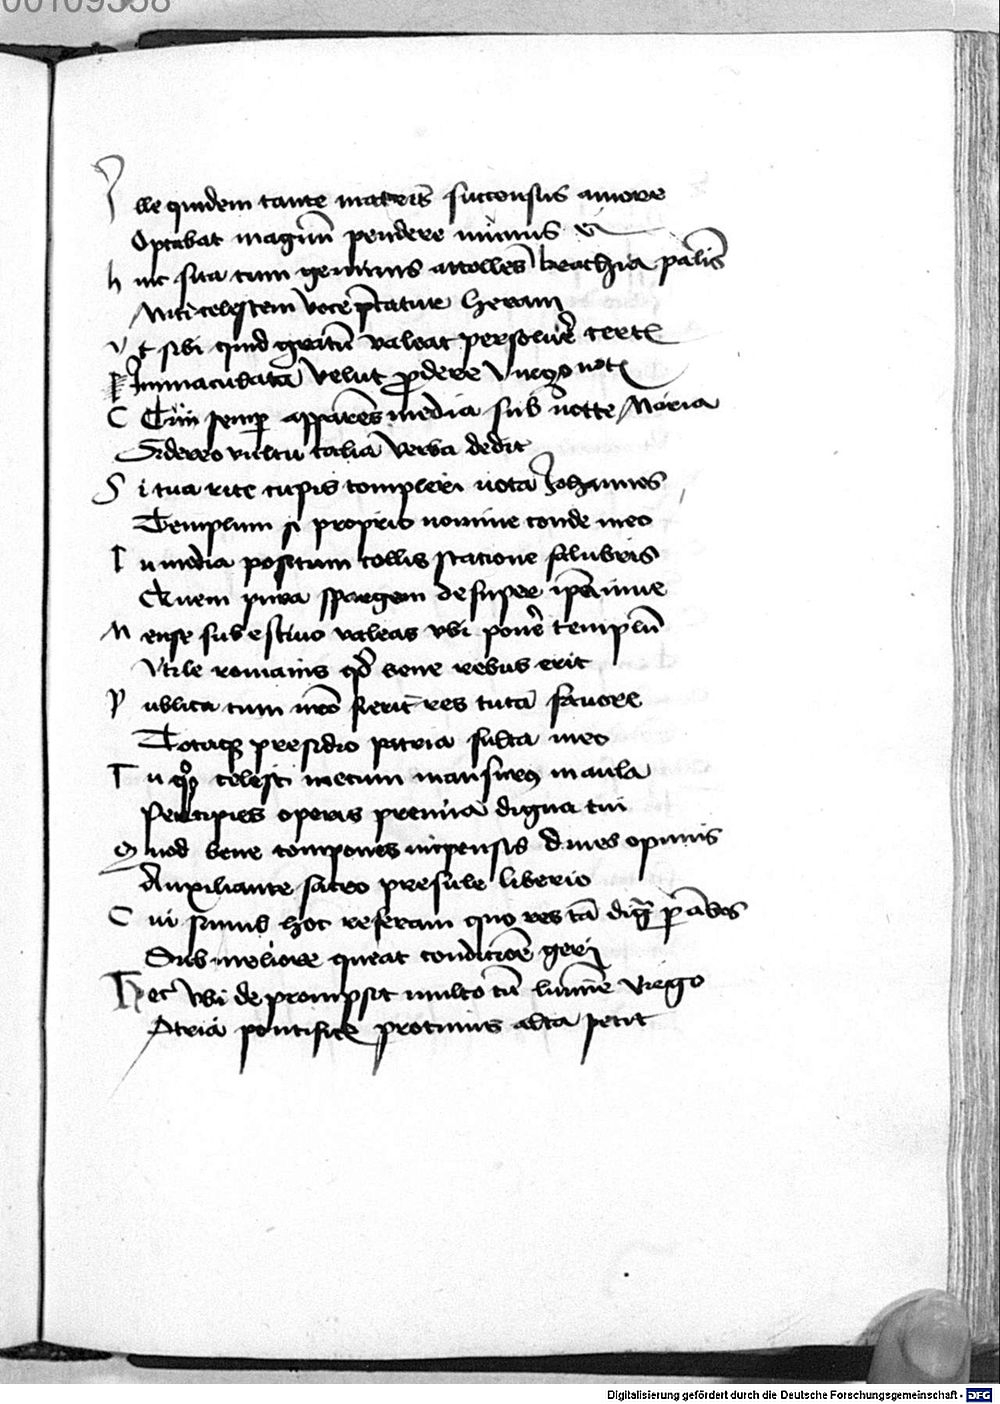 00109338
Ille quidem tante matris succensus amore
Optabat magnū pendere munus ei
Huic sua cum geminus attollēs brachia palmis
Niti celestem voce p̄catur heram
Vt sibi quid gratū valeat persoluē certe
Immaculata velut prodere virgo
C Cui semp apparēs media sub nocte Maria
Sidereo vultu talia verba dedit
Si tua rite cupis compleri uota Johannes
Templum si proprio nomine conde meo
In media positum collis statione salubris
Quem pura spargem desuper ipsa niue
Mense sub estiuo valeas vbi ponē templū
Vtile romanis qd bene rebus erit
Publica cum meo fierit res tuta fauore
Totaq presidio patria fulta meo
Tu quoq celesti mecum mansurus in aula
Percipies operis premia digna tui
Quod bene compones impensis diues opimis
Auxiliante sacro presule liberio
Cui simul hoc referam quo res tā dig
Sub meliore queat conditiōe geri
Hec vbi de prompsit multo cū lumine virgo
Atria pontifici protinus alta petit
Digitalisierung gefördert durch die Deutsche Forschungsgemeinschaft - DFG